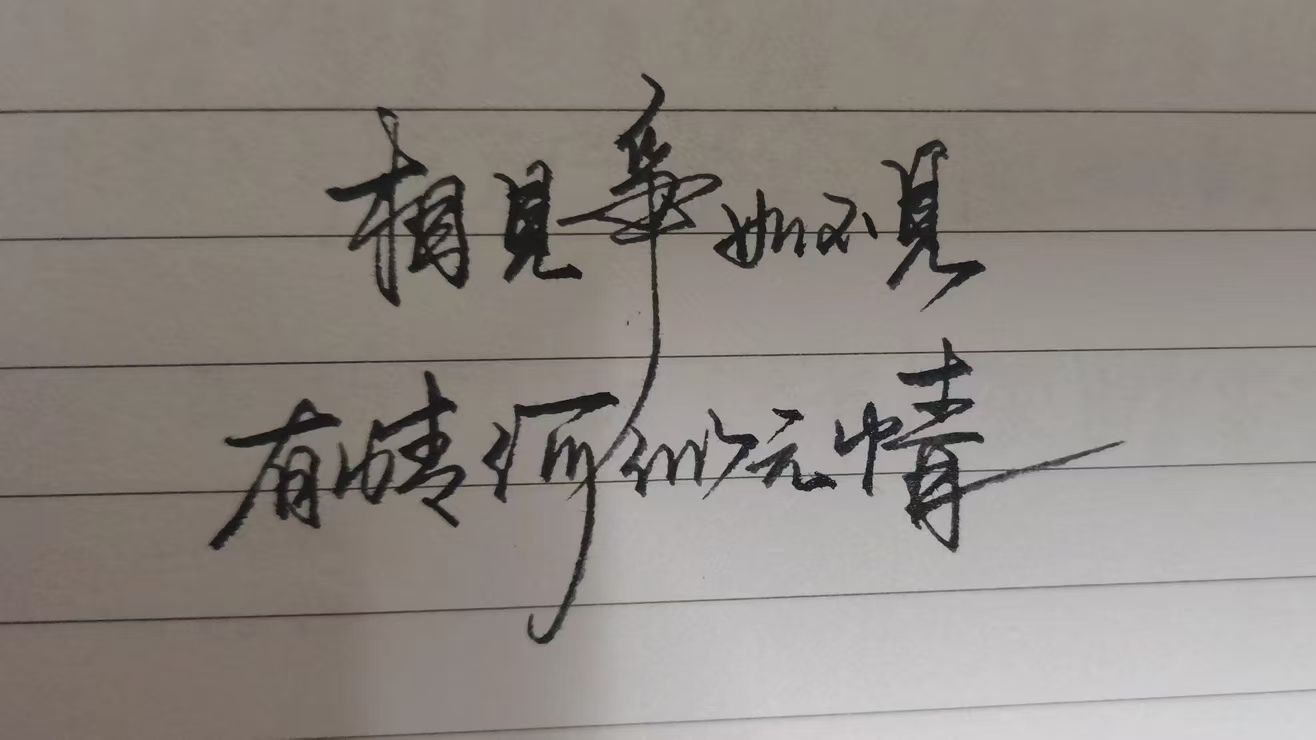 相見爭如不見
有情何似无情